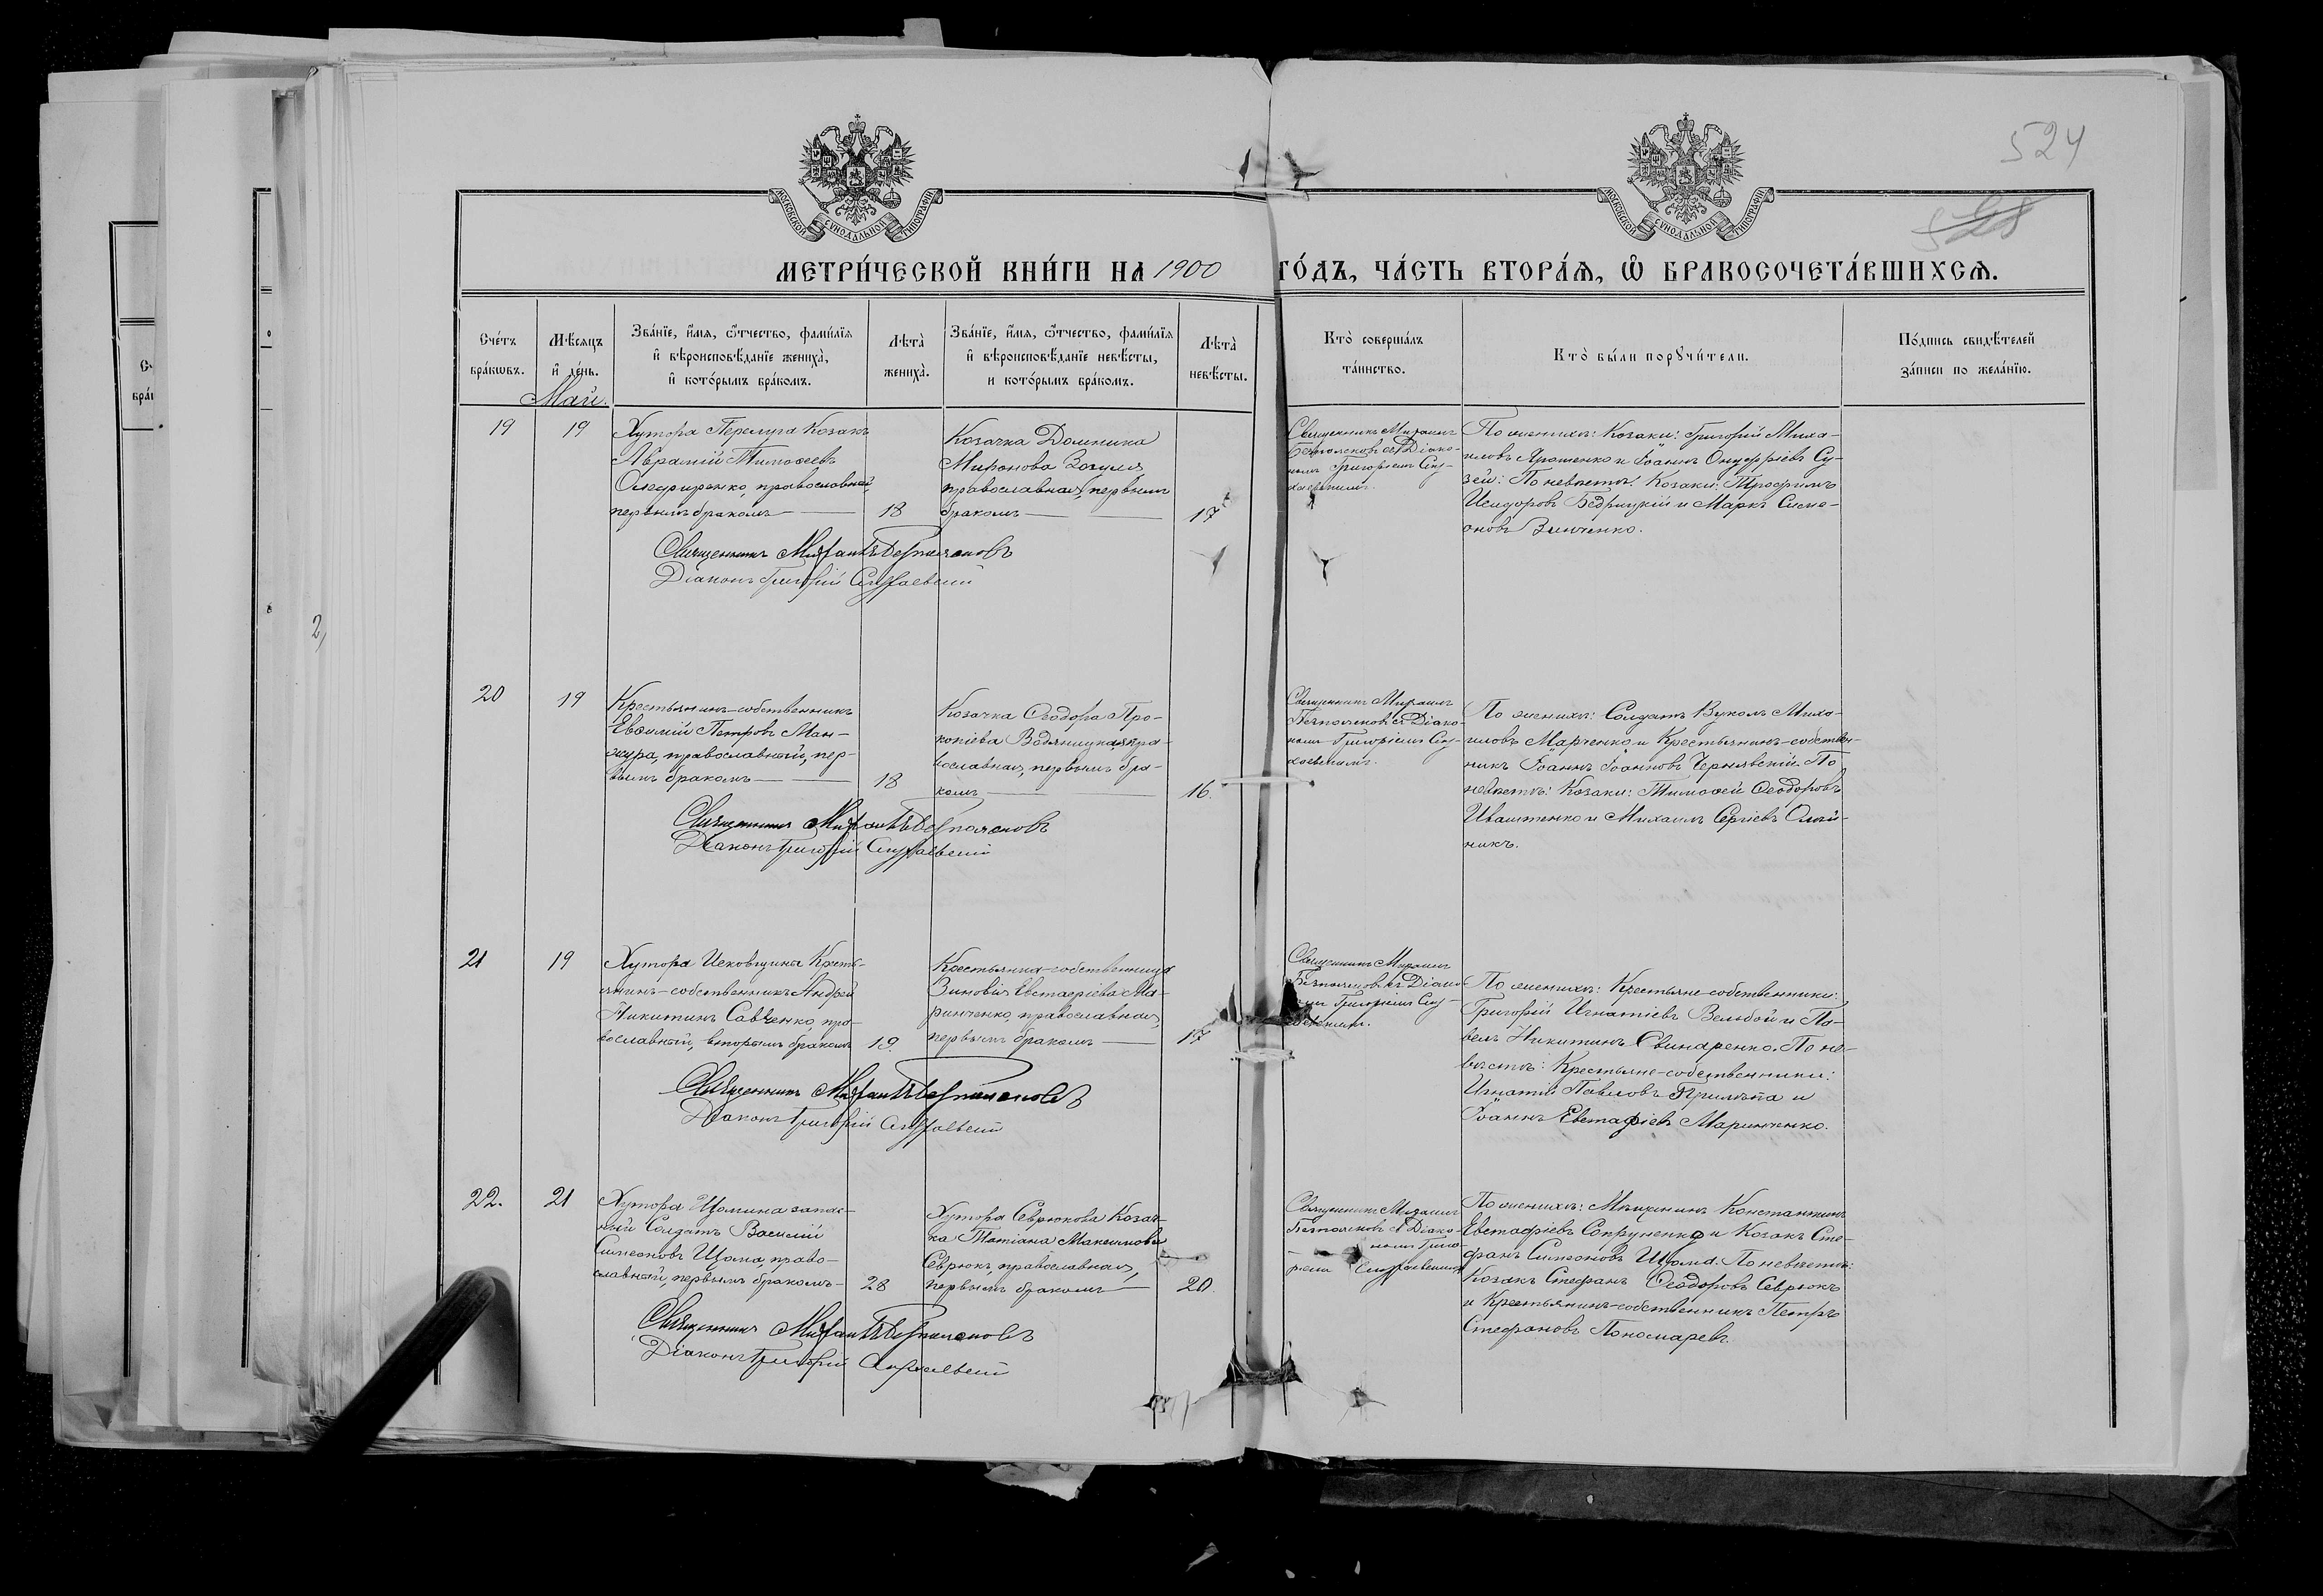 524
МОСКОВСКОЙ СѴНОДАЛЬНОЙ ТИПОГРАФІИ
МОСКОВСКОЙ СѴНОДАЛЬНОЙ ТИПОГРАФІИ
МЕТРИ́ЧЕСКОЙ КНИ́ГИ НА 1900 ГО́ДЪ, ЧА́СТЬ ВТОРА́Ѧ, Ѽ БРАКОСОЧЕТА́ВШИХСѦ.
Сче́тъ бра́кѡвъ.
Мѣ́сяцъ и҆ де́нь.
Зва́нїе, и҆́мя, ѻ҆́тчество, фами́лїя и҆ вѣроисповѣ́данїе жениха̀, и҆ кото́рымъ бра́комъ.
Лѣта̀ жениха̀.
Зва́нїе, и҆́мя, ѻ҆́тчество, фами́лїя и҆ вѣроисповѣ́данїе невѣ́сты, и кото́рымъ бра́комъ.
Лѣта̀ невѣ́сты.
Кто̀ соверша́лъ та́инство.
Кто̀ бы́ли порꙋчи́тели.
По́дпись свидѣ́телей за́писи по жела́нїю.
Май.
19
19
Хутора Перелуга Козакъ
Аврамій Тимоѳеевъ
православный,
первымъ бракомъ
18
Козачка Домника
Миронова
православная, первымъ
бракомъ
17
Священникъ Михаилъ
Безпоясновъ съ Діако-
номъ Григоріемъ
По женихѣ: Козаки: Григорій Миха-
иловъ Ярошенко и Іоаннъ Онуфріевъ Су-
зей: По невѣстѣ: Козаки: Трофимъ
Исидоровъ Бедрицкій и Маркъ Симе-
оновъ Зинченко.
Священникъ Михаилъ Безпоясновъ
Діаконъ Григорій
20
19
Крестьянинъ-собственникъ
Евѳимій Петровъ Ман-
жура, православный, пер-
вымъ бракомъ
18
Козачка Ѳеодора Про-
копіева Водяницкая пра-
вославная, первымъ бра-
комъ
16.
Священникъ Михаилъ
Безпоясновъ съ Діако-
номъ Григоріемъ
По женихѣ: Солдатъ Вуколъ Миха-
иловъ Марченко и Крестьянинъ-собствен-
никъ Іоаннъ Іоанновъ Чернявскій. По
невѣстѣ: Козаки: Тимоѳей Ѳеодоровъ
Ивашенко и Михаилъ Сергіевъ Олей-
никъ.
Священникъ Михаилъ Безпоясновъ
Діаконъ Григорій
21
19
Хутора Исковщина Кресть-
янинъ-собственникъ Андрей
Никитинъ Савченко, пра-
вославный, вторымъ бракомъ
19.
Крестьянка-собственница
Зиновія Евстафіева Ма-
ринченко, православная,
первымъ бракомъ
17
Священникъ Михаилъ
Безпоясновъ съ Діако-
номъ Григоріемъ
По женихѣ: Крестьяне-собственники:
Григорій Игнатіевъ Вельбой и Па-
велъ Никитинъ Свинаренко. По не-
вѣстѣ: Крестьяне-собственники:
Игнатій Павловъ и
Іоаннъ Евстафіевъ Маринченко.
Священникъ Михаилъ Безпоясновъ
Діаконъ Григорій
22.
21
Хутора Щомина запас-
ный Солдатъ Василій
Симеоновъ Щома, право-
славный, первымъ бракомъ
28
Хутора Севрюкова Козач-
ка Татіана Максимова
Севрюкъ, православная,
первымъ бракомъ
20.
Священникъ Михаилъ
Безпоясновъ съ Діако-
номъ Григо-
ріемъ
По женихѣ: Мѣщанинъ Константинъ
Евстафіевъ Сопруненко и Козакъ Сте-
фанъ Симеоновъ Щома. По невѣстѣ:
Козакъ Стефанъ Ѳеодоровъ Севрюкъ
и Крестьянинъ-собственникъ Петръ
Стефановъ Пономаревъ.
Священникъ Михаилъ Безпоясновъ
Діаконъ Григорій